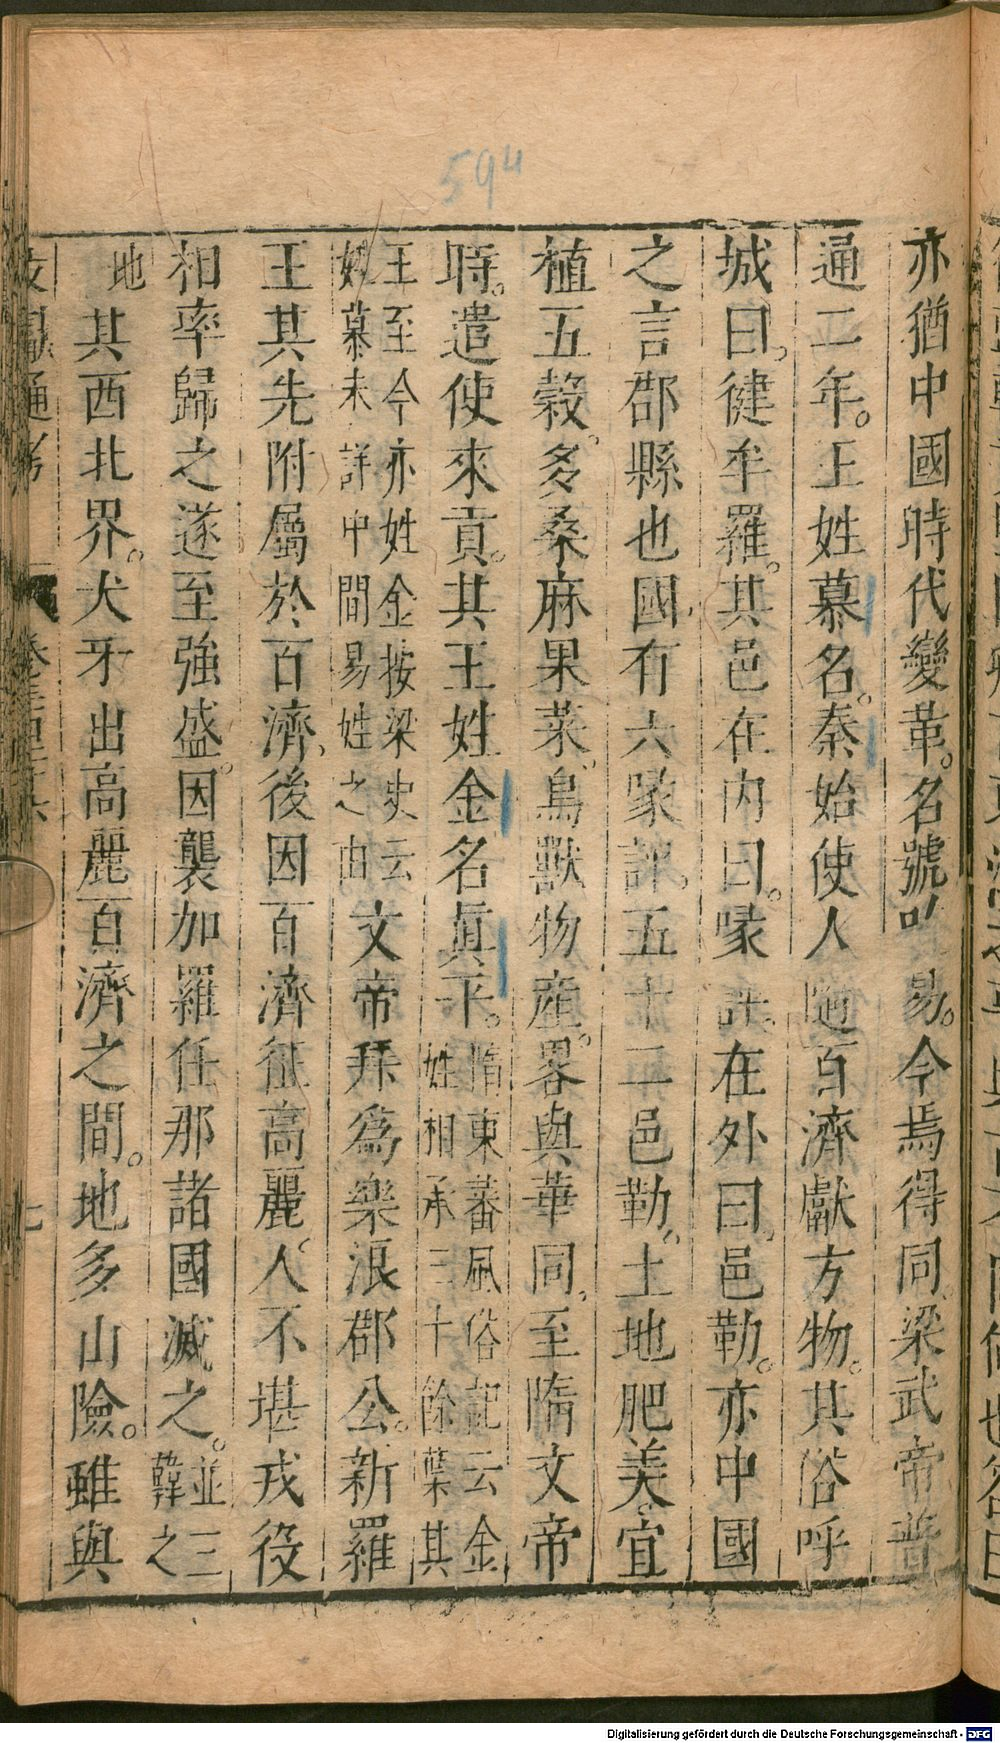 594
亦猶中國時代變革。名號叭易。今焉得同。梁武帝普
通二年。王姓慕名。秦始使人隨百濟獻方物。其俗呼
城曰。健牟羅。其邑在內曰。喙評。在外曰。邑勒。亦中國
之言郡縣也國。有六喙評。五十二邑勒。土地肥美。宜
植五穀。多桑麻果菜。鳥獸物產。畧與華同。至隋文帝
時。遣使來貢。其王姓金名眞平。隋東蕃風俗記云金姓相承三十餘葉其
王至今亦姓金按梁史云姓慕未詳中間易姓之由文帝拜爲樂浪郡公。新羅
王其先附屬於百濟。後因百濟征高麗。人不堪戎役
相率歸之遂至強盛。因襲加羅任那諸國滅之。並三韓之
地其西北界。犬牙出高麗百濟之間。地多山險。雖與
文獻通考
七
Digitalisierung gefördert durch die Deutsche Forschungsgemeinschaft - DFG